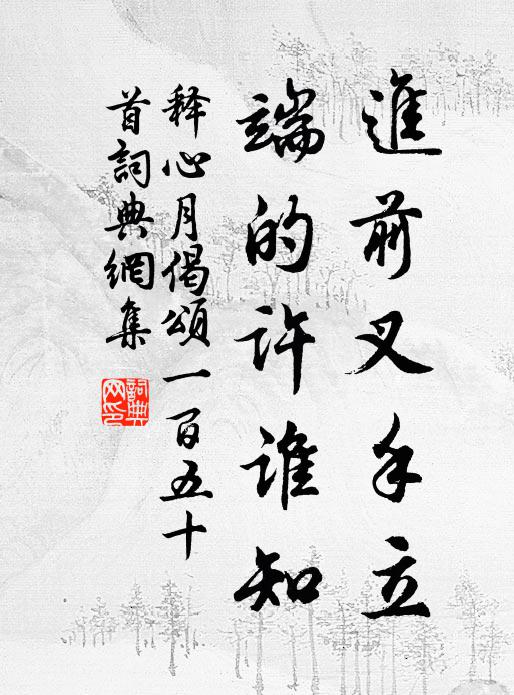 進前叉手立
端的許誰知
釋心月偈頌一百五十
首詞典網集
詞典
网印